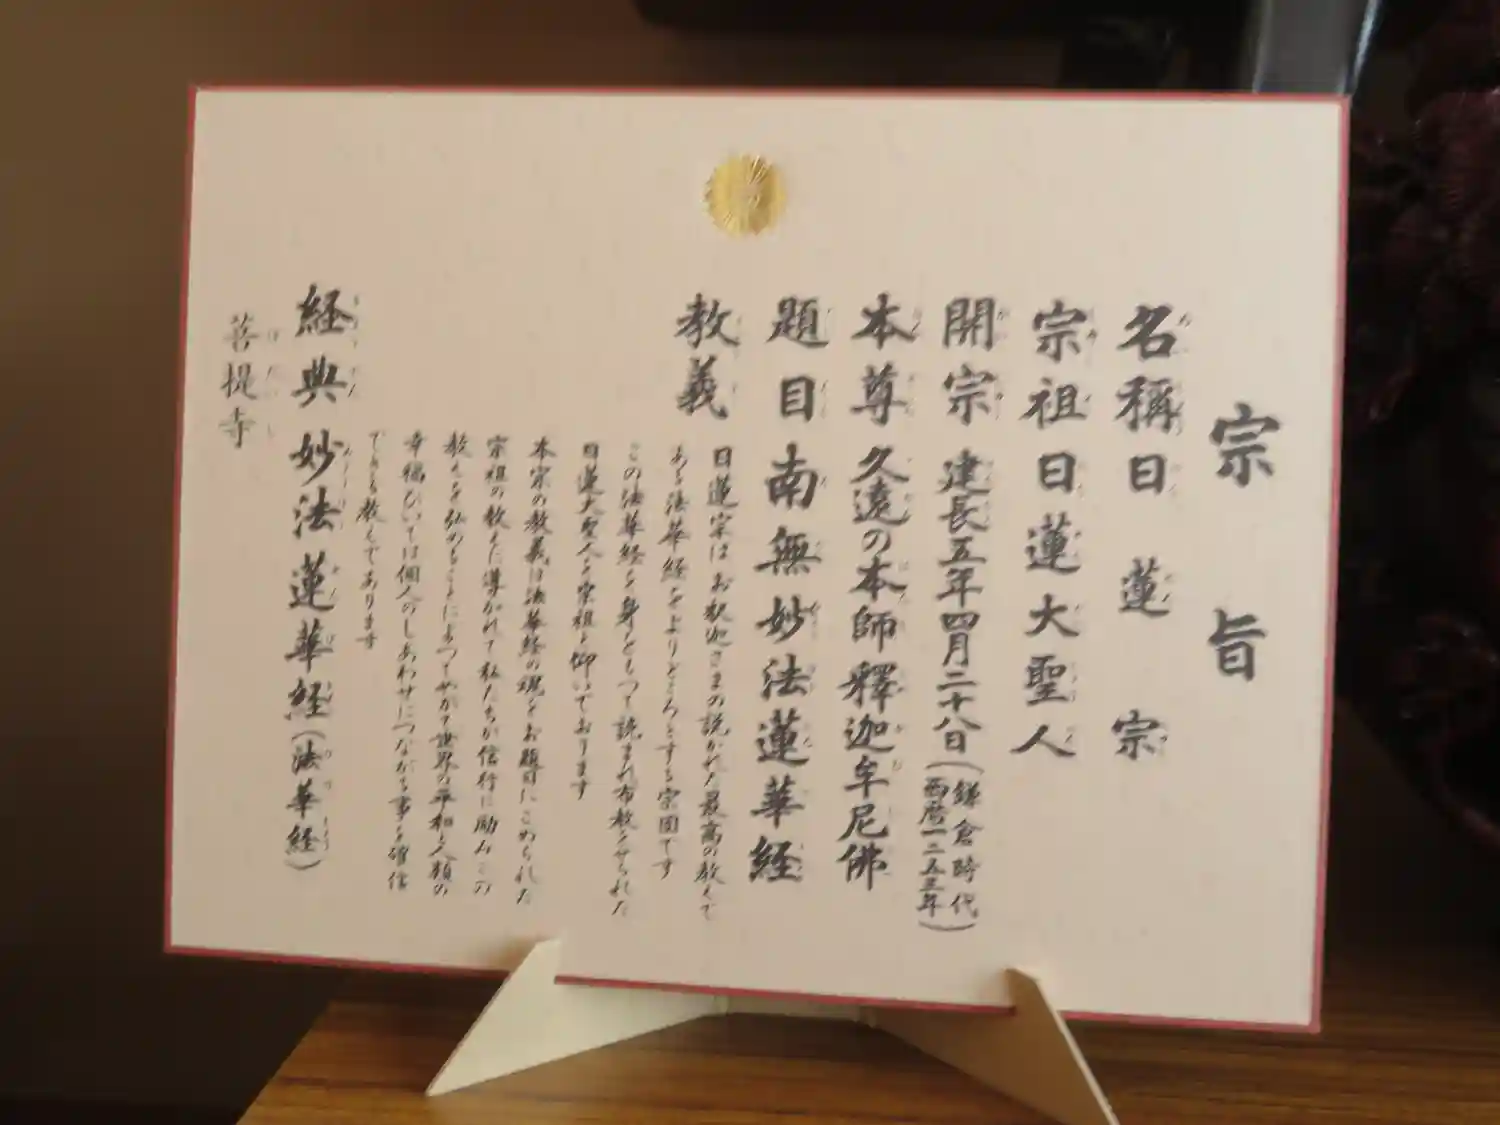 宗旨
名稱 日蓮宗
宗祖 日蓮大聖人
開宗 建長五年四月二十八日(鎌倉時代 西暦一二五三年)
本尊 久遠の本師釋迦牟尼佛
題目 南無妙法蓮華経
教義
日蓮宗はお釈迦さまの説かれた最高の教えで
ある法華経をよりどころとする宗団です
この法華経を身をもって読まれ布教させられた
日蓮大聖人を宗祖と仰いでおります
本宗の教義は法華経の魂をお題目にこめられた
宗祖の教えに導かれて私たちが信行に励みこの
教えを弘めることによってやがて世界の平和と人類の
幸福ひいては個人のしあわせにつながる事を確信
できる教えであります
経典 妙法蓮華経(法華経)
菩提寺